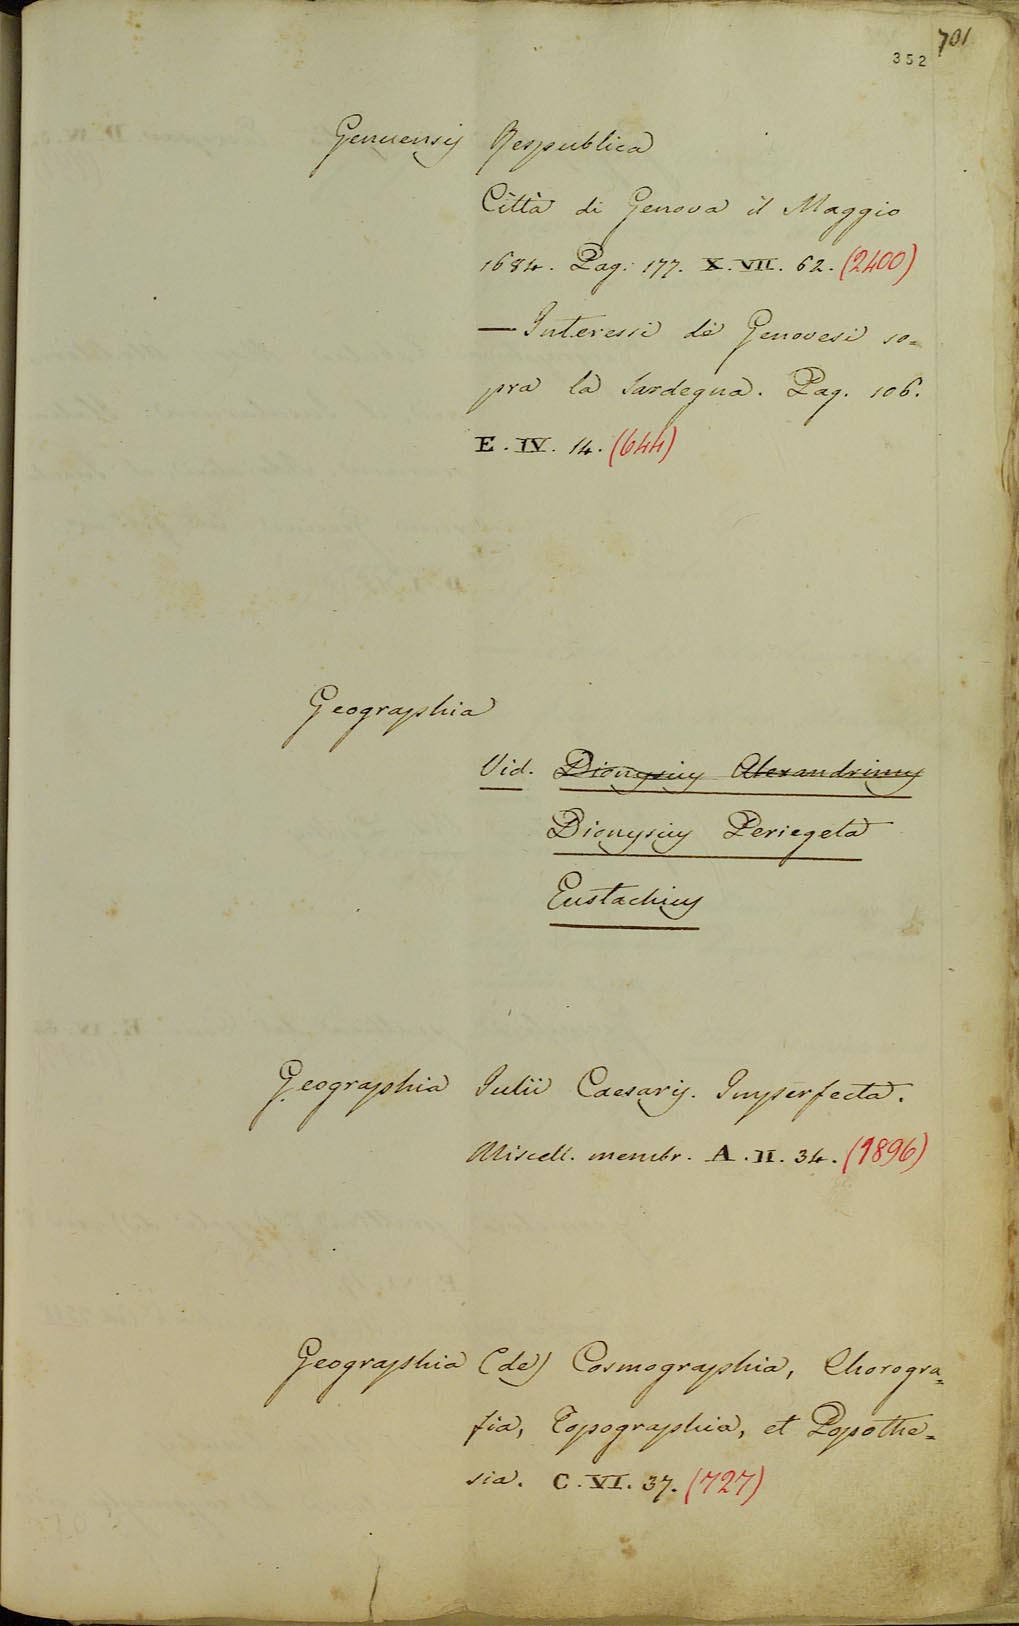 701
352
Genuensis Respublica
Città di Genova il Maggio
1684. Pag: 177. X. VII. 62. (2400)
— Interessi dè Genovesi so=
pra la Sardegna. Pag. 106.
E. IV. 14. (644)
Geographia
Vid. Dionysius Alexandrinus
Dionysius Periegeta
Eustachius
Geographia Iulii Caesaris. Imperfecta.
Miscell. membr. A. II. 34. (1896)
Geographia (de) Cosmographia, Chorogra=
fia, Topographia, et Popothe=
sia. C. VI. 37. (727)